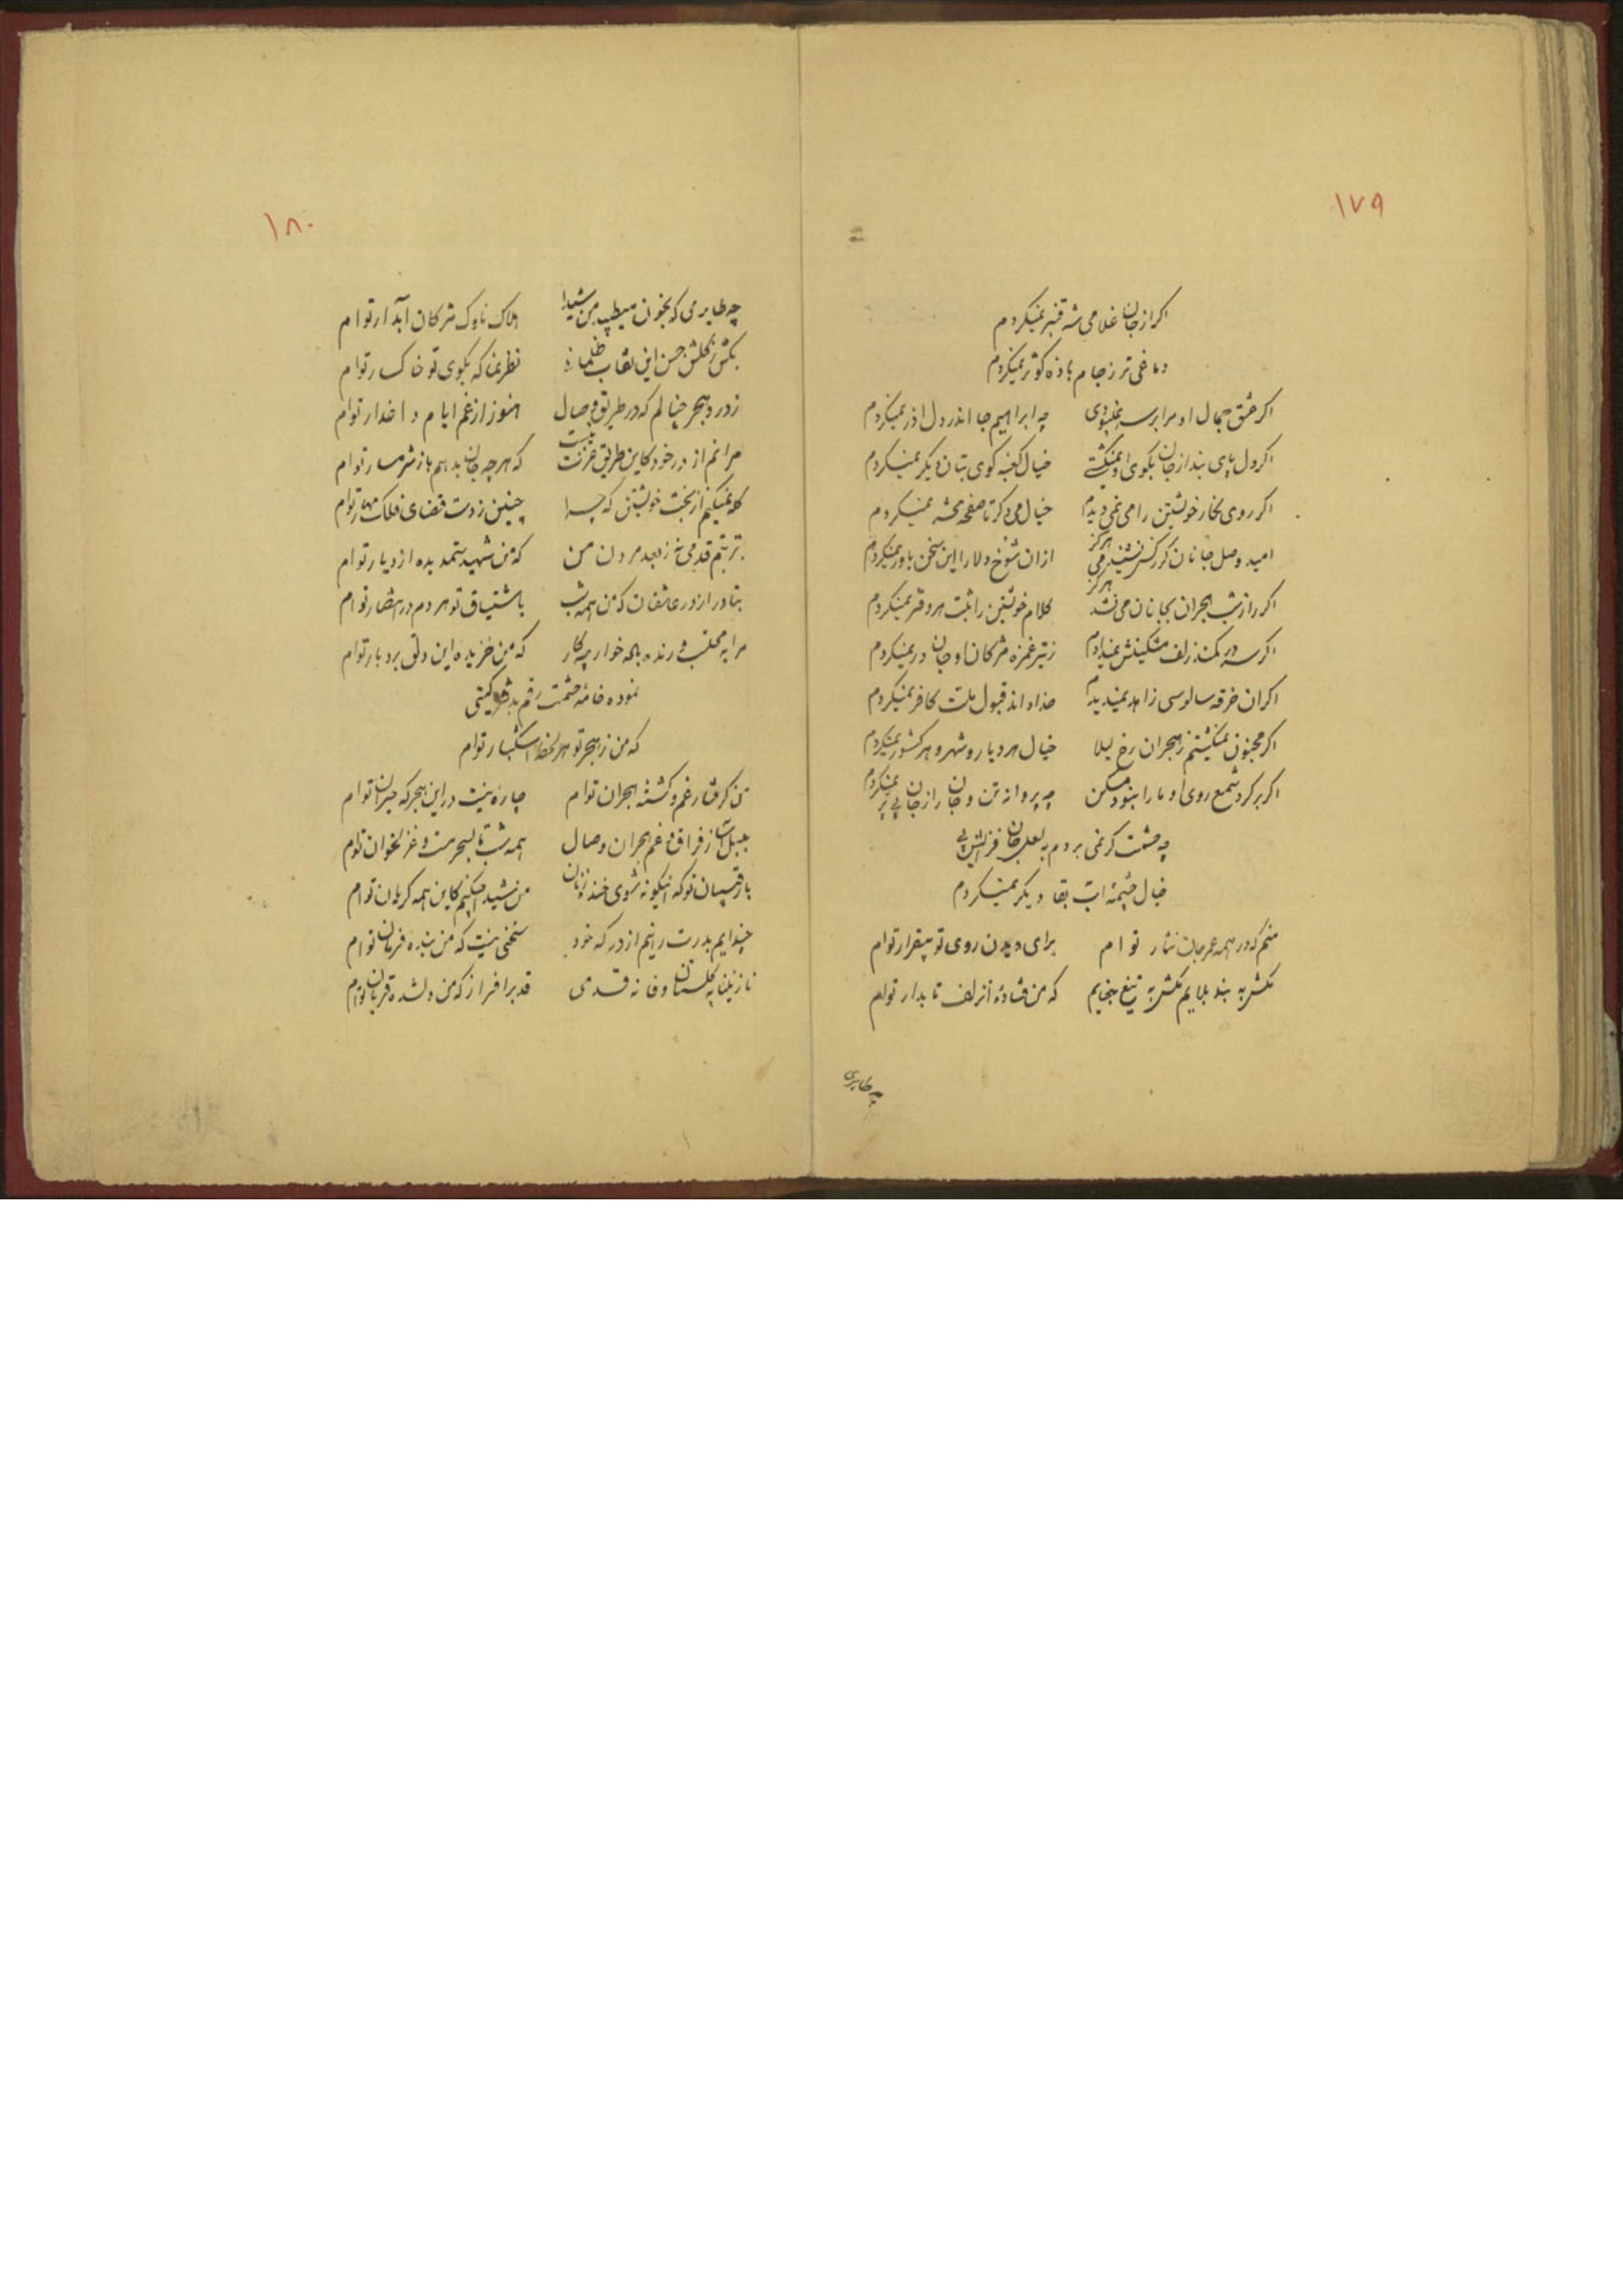 ۱۷۹
اکر از جان غلامی شه قنبر نمیکردم
دماغی تر ز جام باده کوثر نمیکردم
اکر عشق جمال او مرا بر سر نمیبودی چه ابراهیم جا اندر دل اذر نمیکردم
اکر دل پای بند از جان بکوی او نمیکشتی خیال کعبه کوی بتان دیکر نمیکردم
اکر روی نکار خویشتن را می نمی دیدم خیال می دکر تا صفحه محشر نمیکردم
امید وصل جانان کر ز کس نشنیدمی هرکز ازان شوخ دلارا این سخن باور نمیکردم
اکر راز شب هجران بجانان می نشد هرکز کلام خویشتن را ثبت هر دفتر نمیکردم
اکر سر در کمند زلف مشکینش نمیدادم ز تیر غمزه مژکان او جان در نمیکردم
اکر ان خرقه سالوسی زاهد نمیدیدم خدا داند قبول ملت کافر نمیکردم
اکر مجنون نمیکشتم ز هجران رخ لیلا خیال هر دیار و شهر و هر کشور نمیکردم
اکر بر کرد شمع روی او ما را نبود مسکن چه پروانه تن و جان را از جان بی پر نمیکردم
چه حشمت کر نمی بردم به لعل جان فزایش پی
خیال چشمه اب بقا دیکر نمیکردم
منم که در همه عمر جان نثار توام برای دیدن روی تو بیقرار توام
بکش به بند بلایم بکش به تیغ جفایم که من فتاده از زلف تابدار توام
چه طایری
۱۸۰
چه طایرمی که بخون میطپد من شیدا هلاک ناوک مژکان آبدار توام
بکش ز کلشن حسن این نقاب ظلمانی نظر نما که بکوی تو خاکسار توام
ز درد هجر چنالم که در طریق وصال هنوز از غم ایام داغدار توام
مرانم از در خود کاین طریق عزت نیست که هر چه جان بدهم باز شرمسار توام
کله نمیکنم از بخت خویشتن که چرا چنین ز دست قضای فلک توام
بتربتم قدمی نه ز بعد مردن من که من شهید ستمدیده از دیار توام
بتا در از در عاشقان که من همه شب باشتیاق تو هر دم در انتظار توام
مرا به محتسب و رند باده خوار چه کار که من خریده این دلق بردبار توام
نموده خامه حشمت رقم به کیتی
که من ز هجر تو هر لحظه اشکبار توام
من کرفتار غم و کشته هجران توام چاره نیست در این هجر که حیران توام
بلبل از فراق و غم هجران وصال همه شب تا بسحر مست و غزلخوان توام
با رقیبان تو که اینکونه شوی خنده زنان من شیدا چکنم کاین همه کریان توام
چند ایم بدرت رانیم از درکه خود سخنی نیست که من بنده فرمان توام
نازنینا به کلستان وفا نه قدمی قد برافراز که من دلشده قربان توام